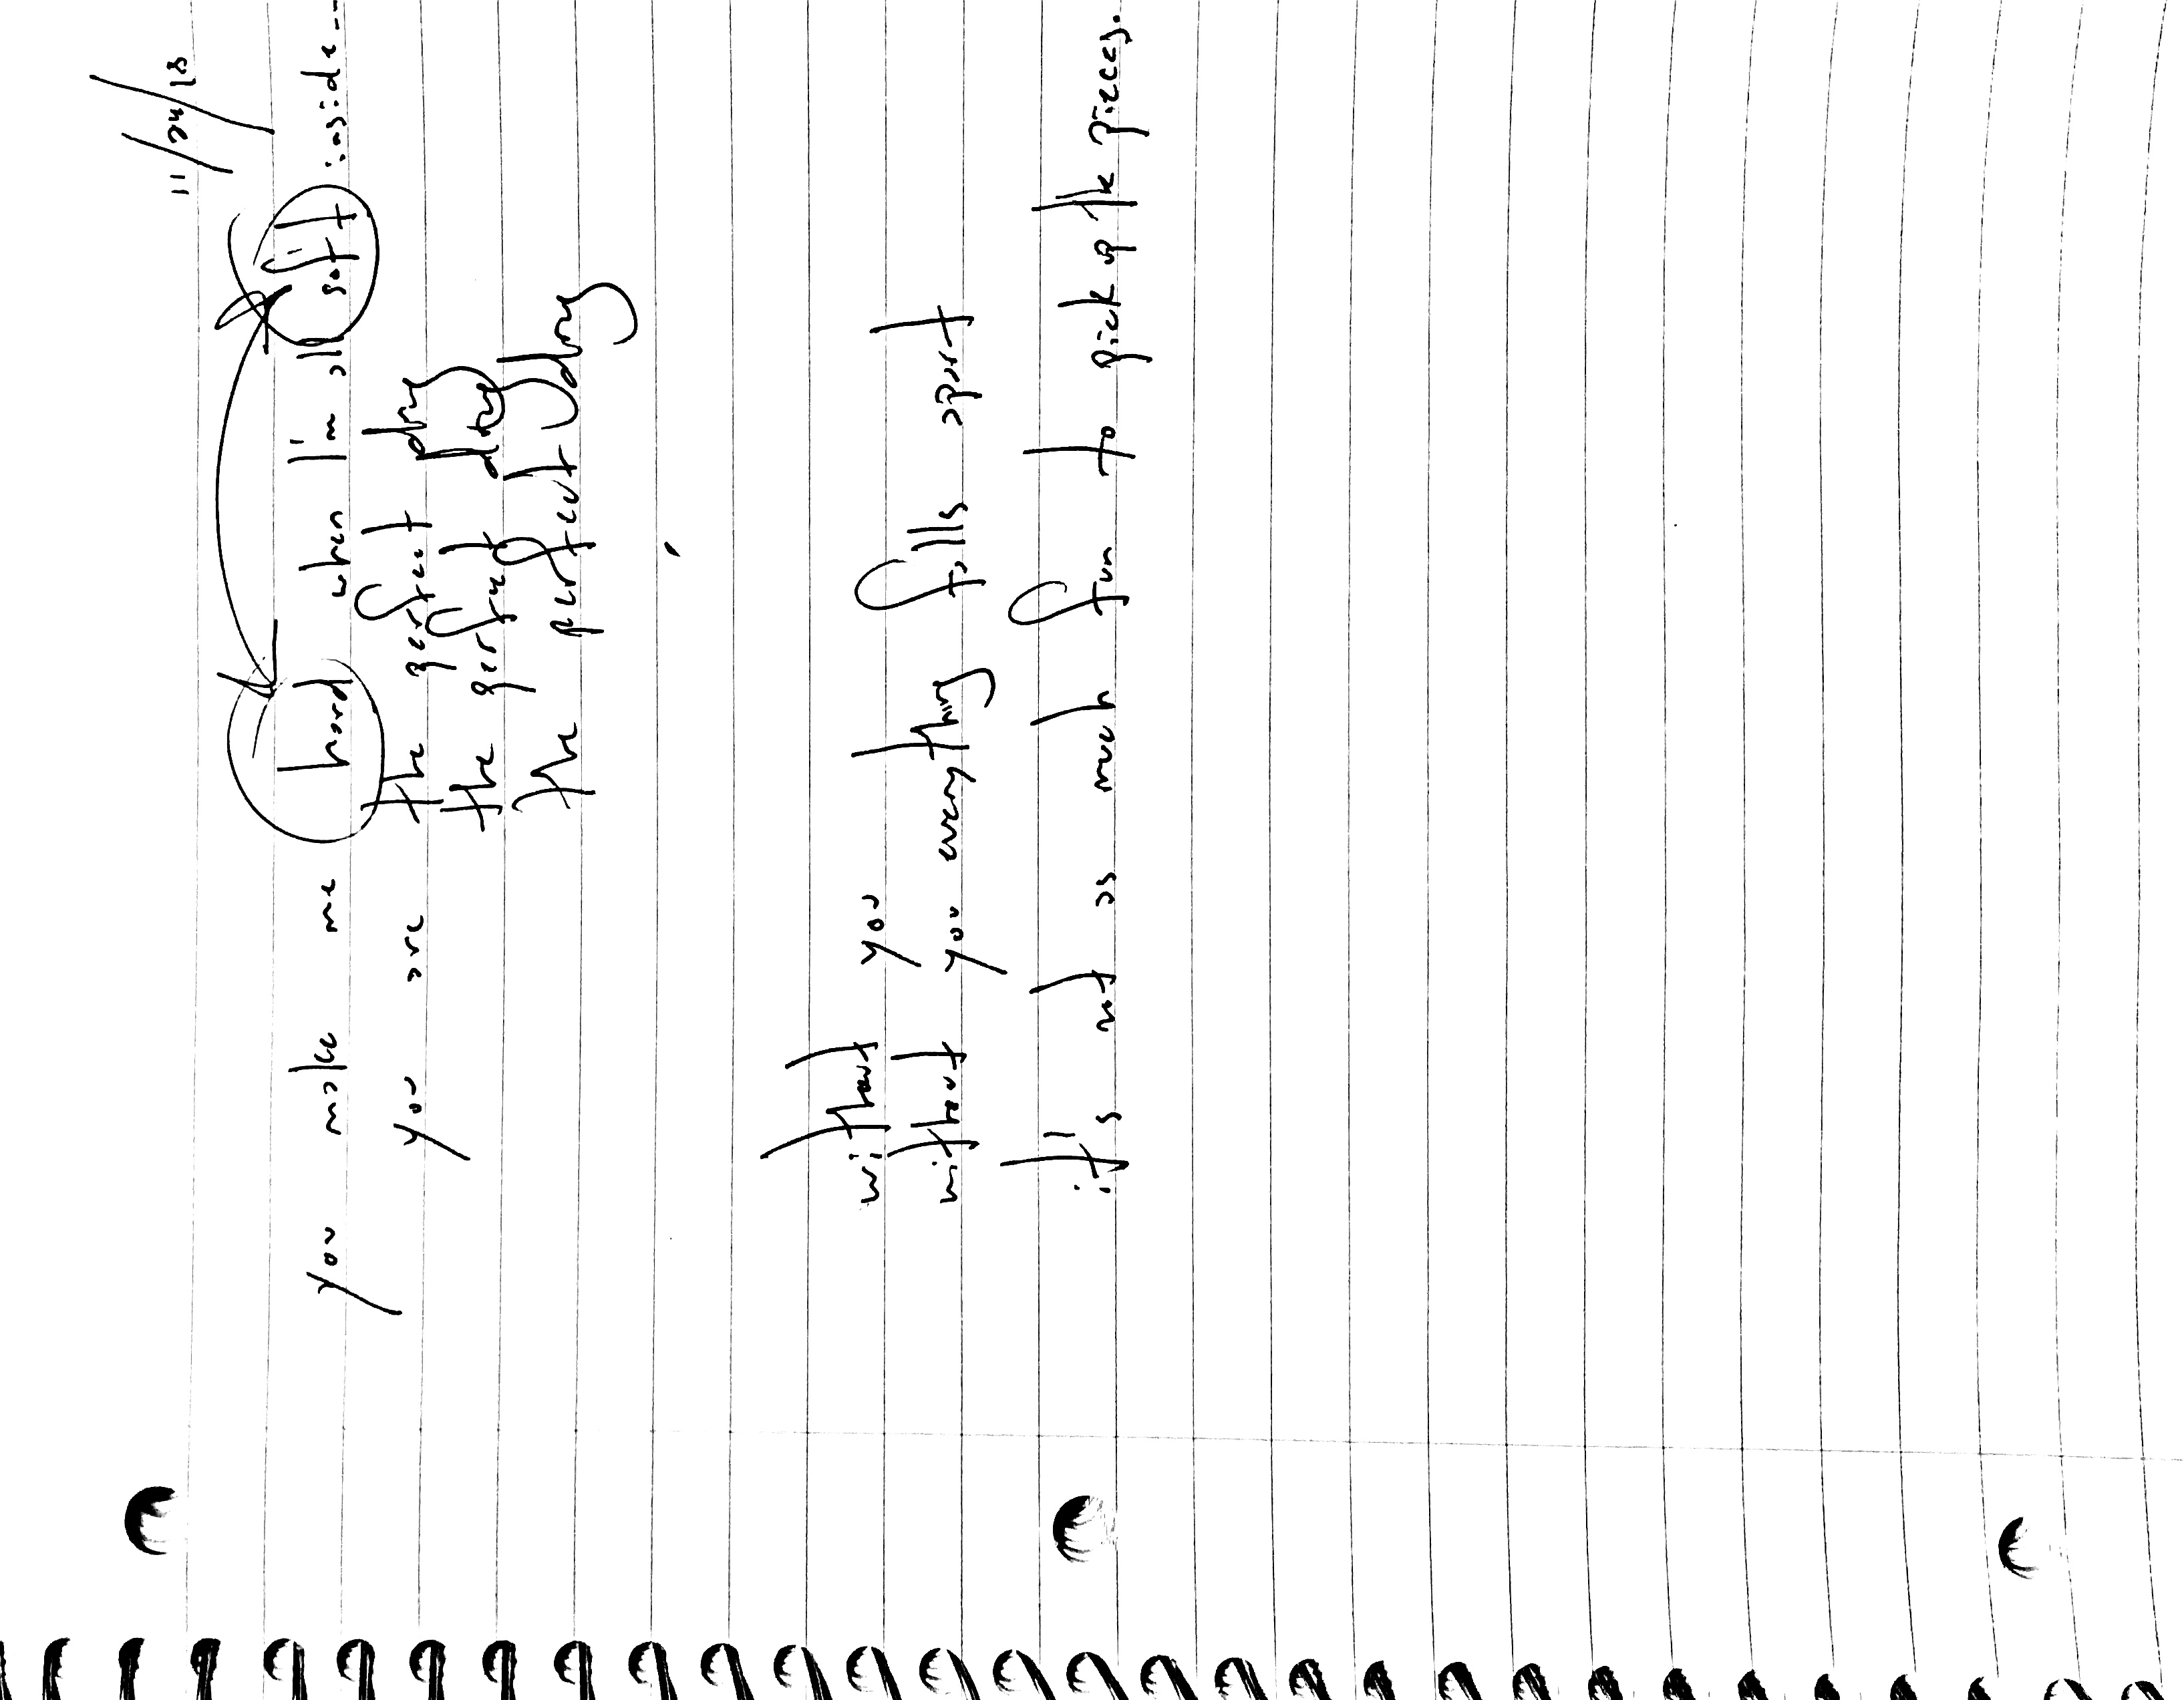 11/24/18
you make me hard when I'm all soft inside--
you are the perfect drug
the perfect drug
the perfect drug
without you
without you everything falls apart
it's not as much fun to pick up the pieces.